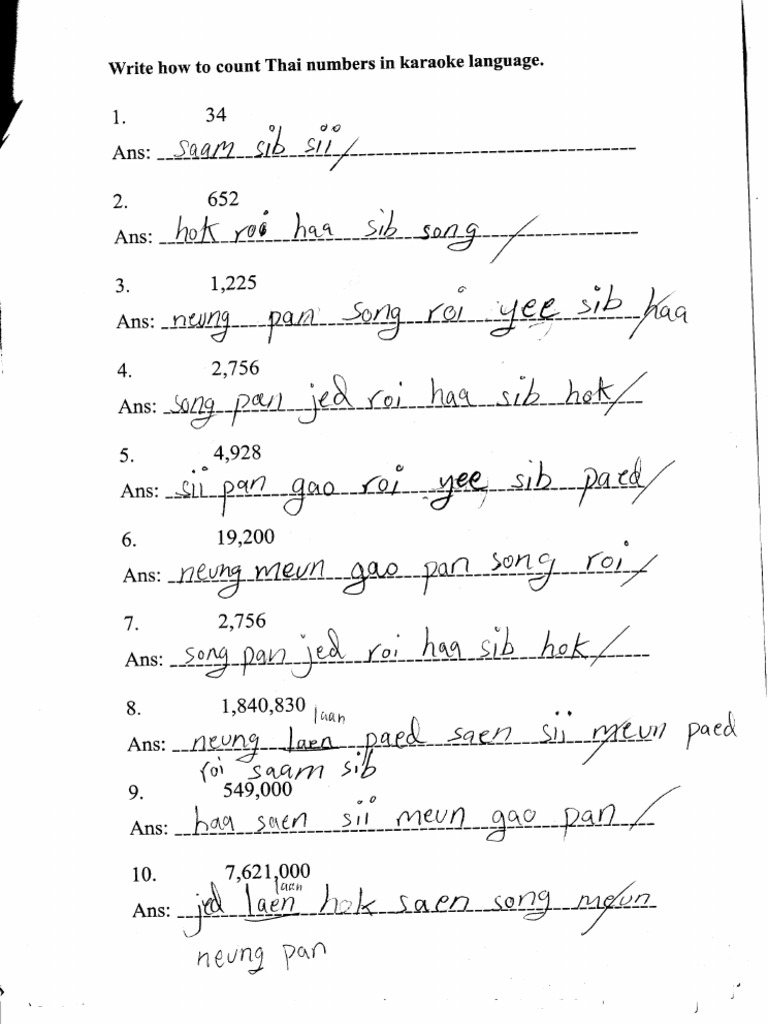 Write how to count Thai numbers in karaoke language.
1. 34
Ans: saam sib sii
2. 652
Ans: hok roi haa sib song
3. 1,225
Ans: neung pan song roi yee sib haa
4. 2,756
Ans: song pan jed roi haa sib hok
5. 4,928
Ans: sii pan gao roi yee sib paed
6. 19,200
Ans: neung meun gao pan song roi
7. 2,756
Ans: song pan jed roi haa sib hok
8. 1,840,830
laan
Ans: neung laen paed saen sii meun paed
roi saam sib
9. 549,000
Ans: haa saen sii meun gao pan
10. 7,621,000
laan
Ans: jed laen hok saen song meun
neung pan